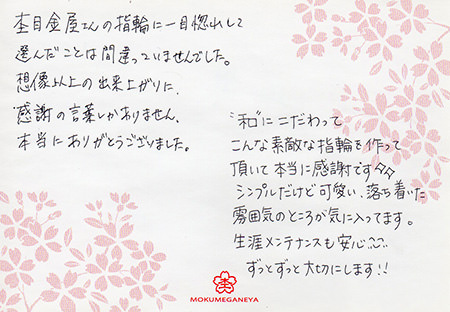 杢目金屋さんの指輪に一目惚れして
選んだことは間違っていませんでした。
想像以上の出来上がりに、
感謝の言葉しかありません、
本当にありがとうございました。
“和”にこだわって
こんな素敵な指輪を作って
頂いて本当に感謝です
シンプルだけど可愛い、落ち着いた
雰囲気のところが気に入ってます。
生涯メンテナンスも安心
ずっとずっと大切にします!!
MOKUMEGANEYA